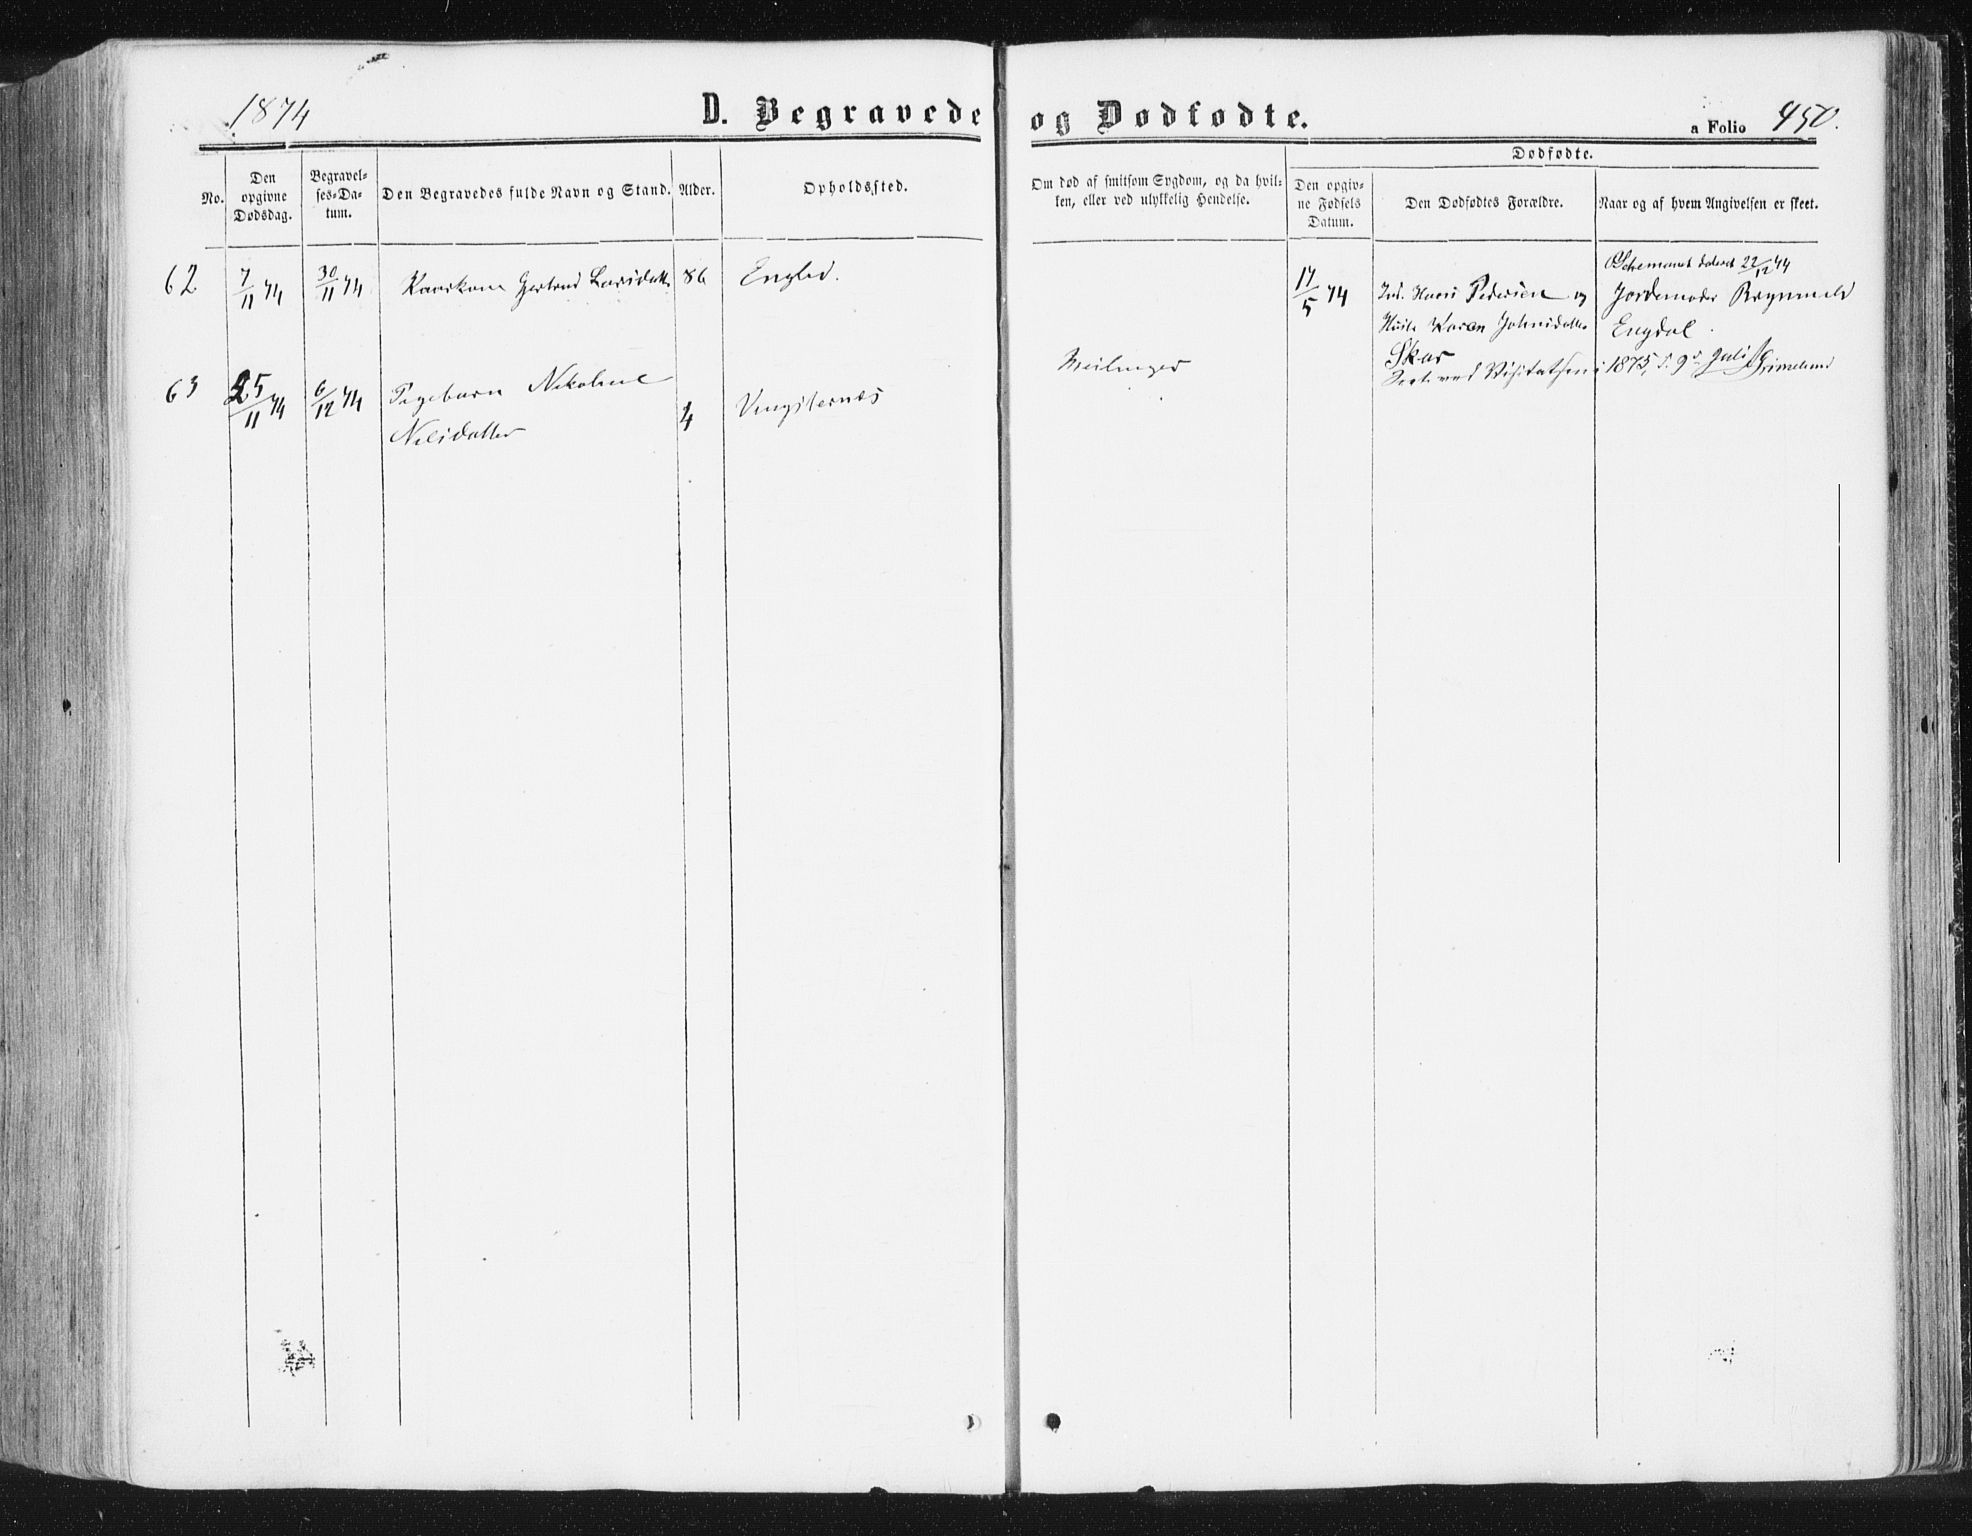 1874
D. Begravede og Dødfødte.
a Folio 450.
No.
Den opgivne Dødsdag.
Begravel-
ses-Da-
tum.
Den Begravedes fulde Navn og Stand.
Alder.
Opholdssted.
Om død af smitsom Sygdom, og da hvil-
ken, eller ved ulykkelig Hendelse.
Dødfødte.
Den opgiv-
ne Fødsels
Datum.
Den Dødfødtes Forældre.
Naar og af hvem Angivelsen er skeet.
62 7/11 74 30/11 74 Kaarkone Gertrud Larsdatter 86 Englid.
17/5 74 Ind. Hans Pedersen og
Hust. Karen Johnsdatter
Skar
Schemaet dateret 22/12 74
Jordemoder Brynnild
Engdal.
Seet ved Visitatsen i 1875, d. 9de Juli Grimelund
63 25/11 74 6/12 74 Pigebarn Nikoline
Nilsdatter
4 Vingsternes
Meslinger